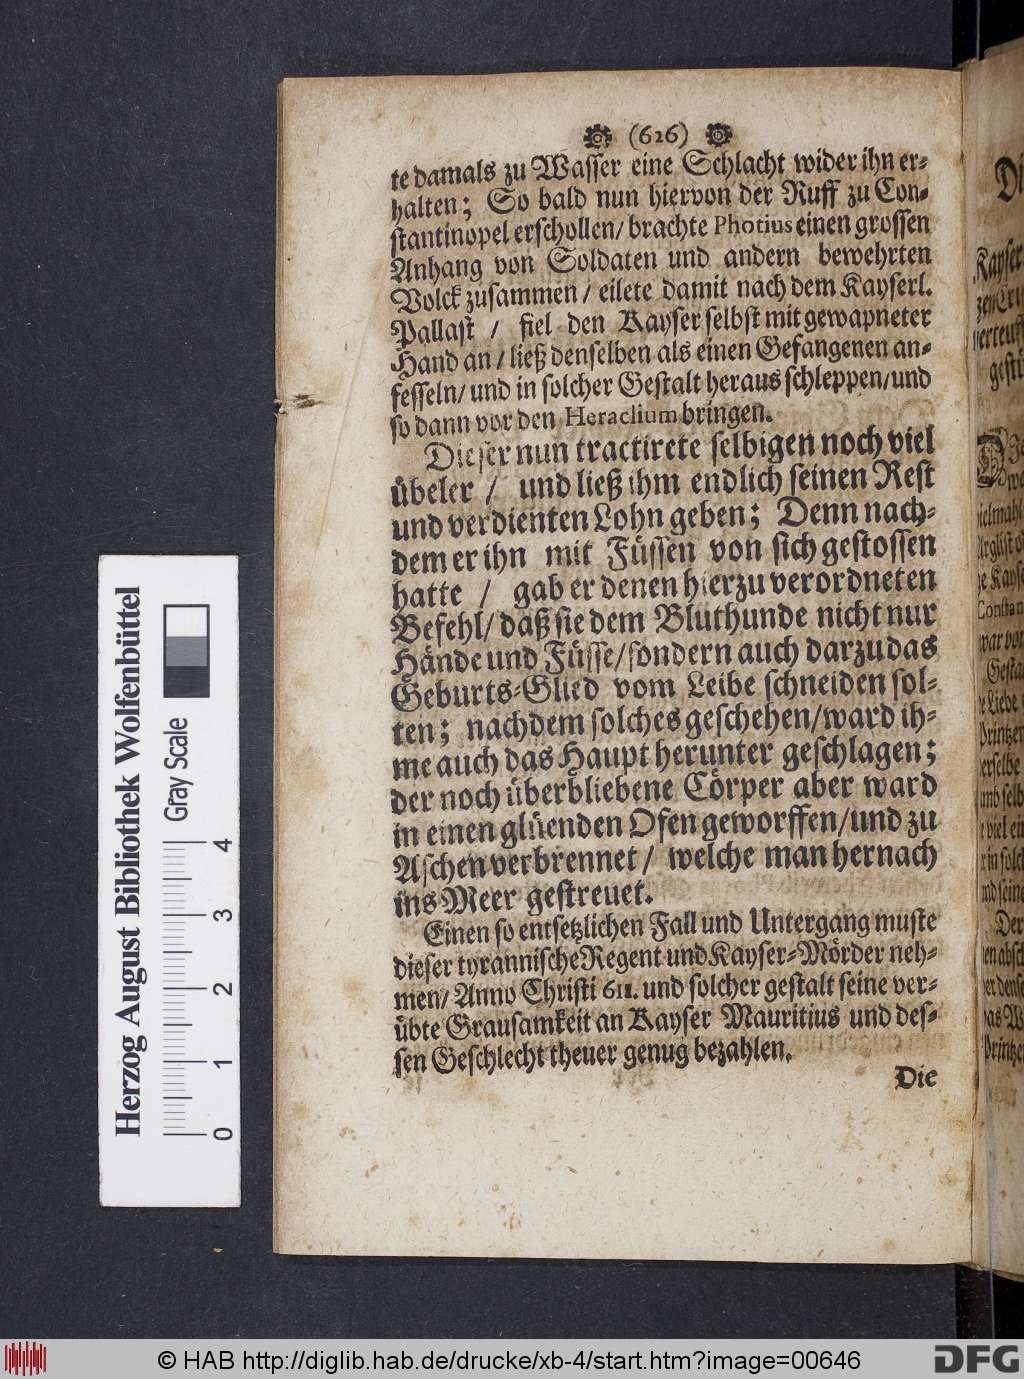 (626)
te damals zu Wasser eine Schlacht wider ihn er-
halten; So bald nun hiervon der Ruff zu Con-
stantinopel erschollen/ brachte Photius einen grossen
Anhang von Soldaten und andern bewehrten
Volck zusammen/ eilete damit nach dem Kayserl.
Pallast / fiel den Kayser selbst mit gewapneter
Hand an/ ließ denselben als einen Gefangenen an-
fesseln/ und in solcher Gestalt heraus schleppen/und
so dann vor den Heraclium bringen.
Dieser nun tractirete selbigen noch viel
übeler / und ließ ihm endlich seinen Rest
und verdienten Lohn geben; Denn nach-
dem er ihn mit Füssen von sich gestossen
hatte / gab er denen hierzu verordneten
Befehl/ daß sie dem Bluthunde nicht nur
Hände und Füsse/sondern auch darzu das
Geburts-Glied vom Leibe schneiden sol-
ten; nachdem solches geschehen/ward ih-
me auch das Haupt herunter geschlagen;
der noch überbliebene Cörper aber ward
in einen glüenden Ofen geworffen/und zu
Aschen verbrennet/ welche man hernach
ins Meer gestreuet.
Einen so entsetzlichen Fall und Untergang muste
dieser tyrannische Regent und Kayser-Mörder neh-
men/ Anno Christi 611. und solcher gestalt seine ver-
übte Grausamkeit an Kayser Mauritius und des-
sen Geschlecht theuer genug bezahlen.
Die
Herzog August Bibliothek Wolfenbüttel
Gray Scale
0 1 2 3 4
© HAB http://diglib.hab.de/drucke/xb-4/start.htm?image=00646
DFG